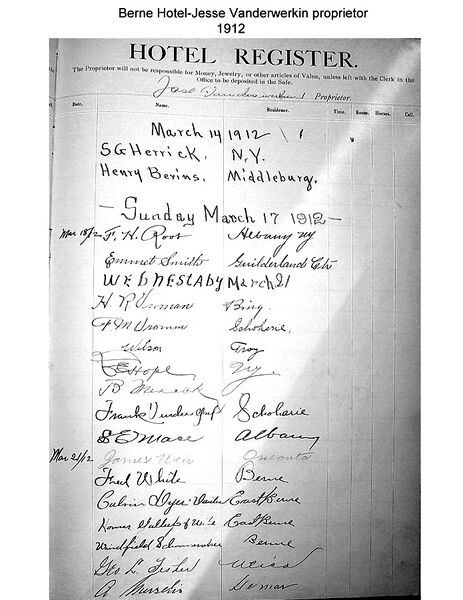 Berne Hotel-Jesse Vanderwerkin proprietor
1912
HOTEL REGISTER.
The Proprietor will not be responsible for Money, Jewelry, or other articles of Value, unless left with the Clerk in the
Office to be deposited in the Safe.
Jess Vanderwerken Proprietor.
Date. Name. Residence. Time. Room. Horses. Call.
March 14 1912
S G Herrick. N.Y.
Henry Berins. Middleburg.
- Sunday March 17 1912 -
Mar 18/12 F. H. Root Albany ny
Emmet Smith Guilderland Ctr
WEDNESLABY March 21
H. R Vroman Bing.
F M Vroman Schoharie,
Wilson Troy
Hope Ny.
B
Frank Schoharie
S E Mase Albany
Mar 21/12 James Weir Oneonta
Fred White Berne
Calvin Dyer East Berne
Homer Gallup & Wife East Berne
Windfield Berne
Geo. L. Fisher Utica
A